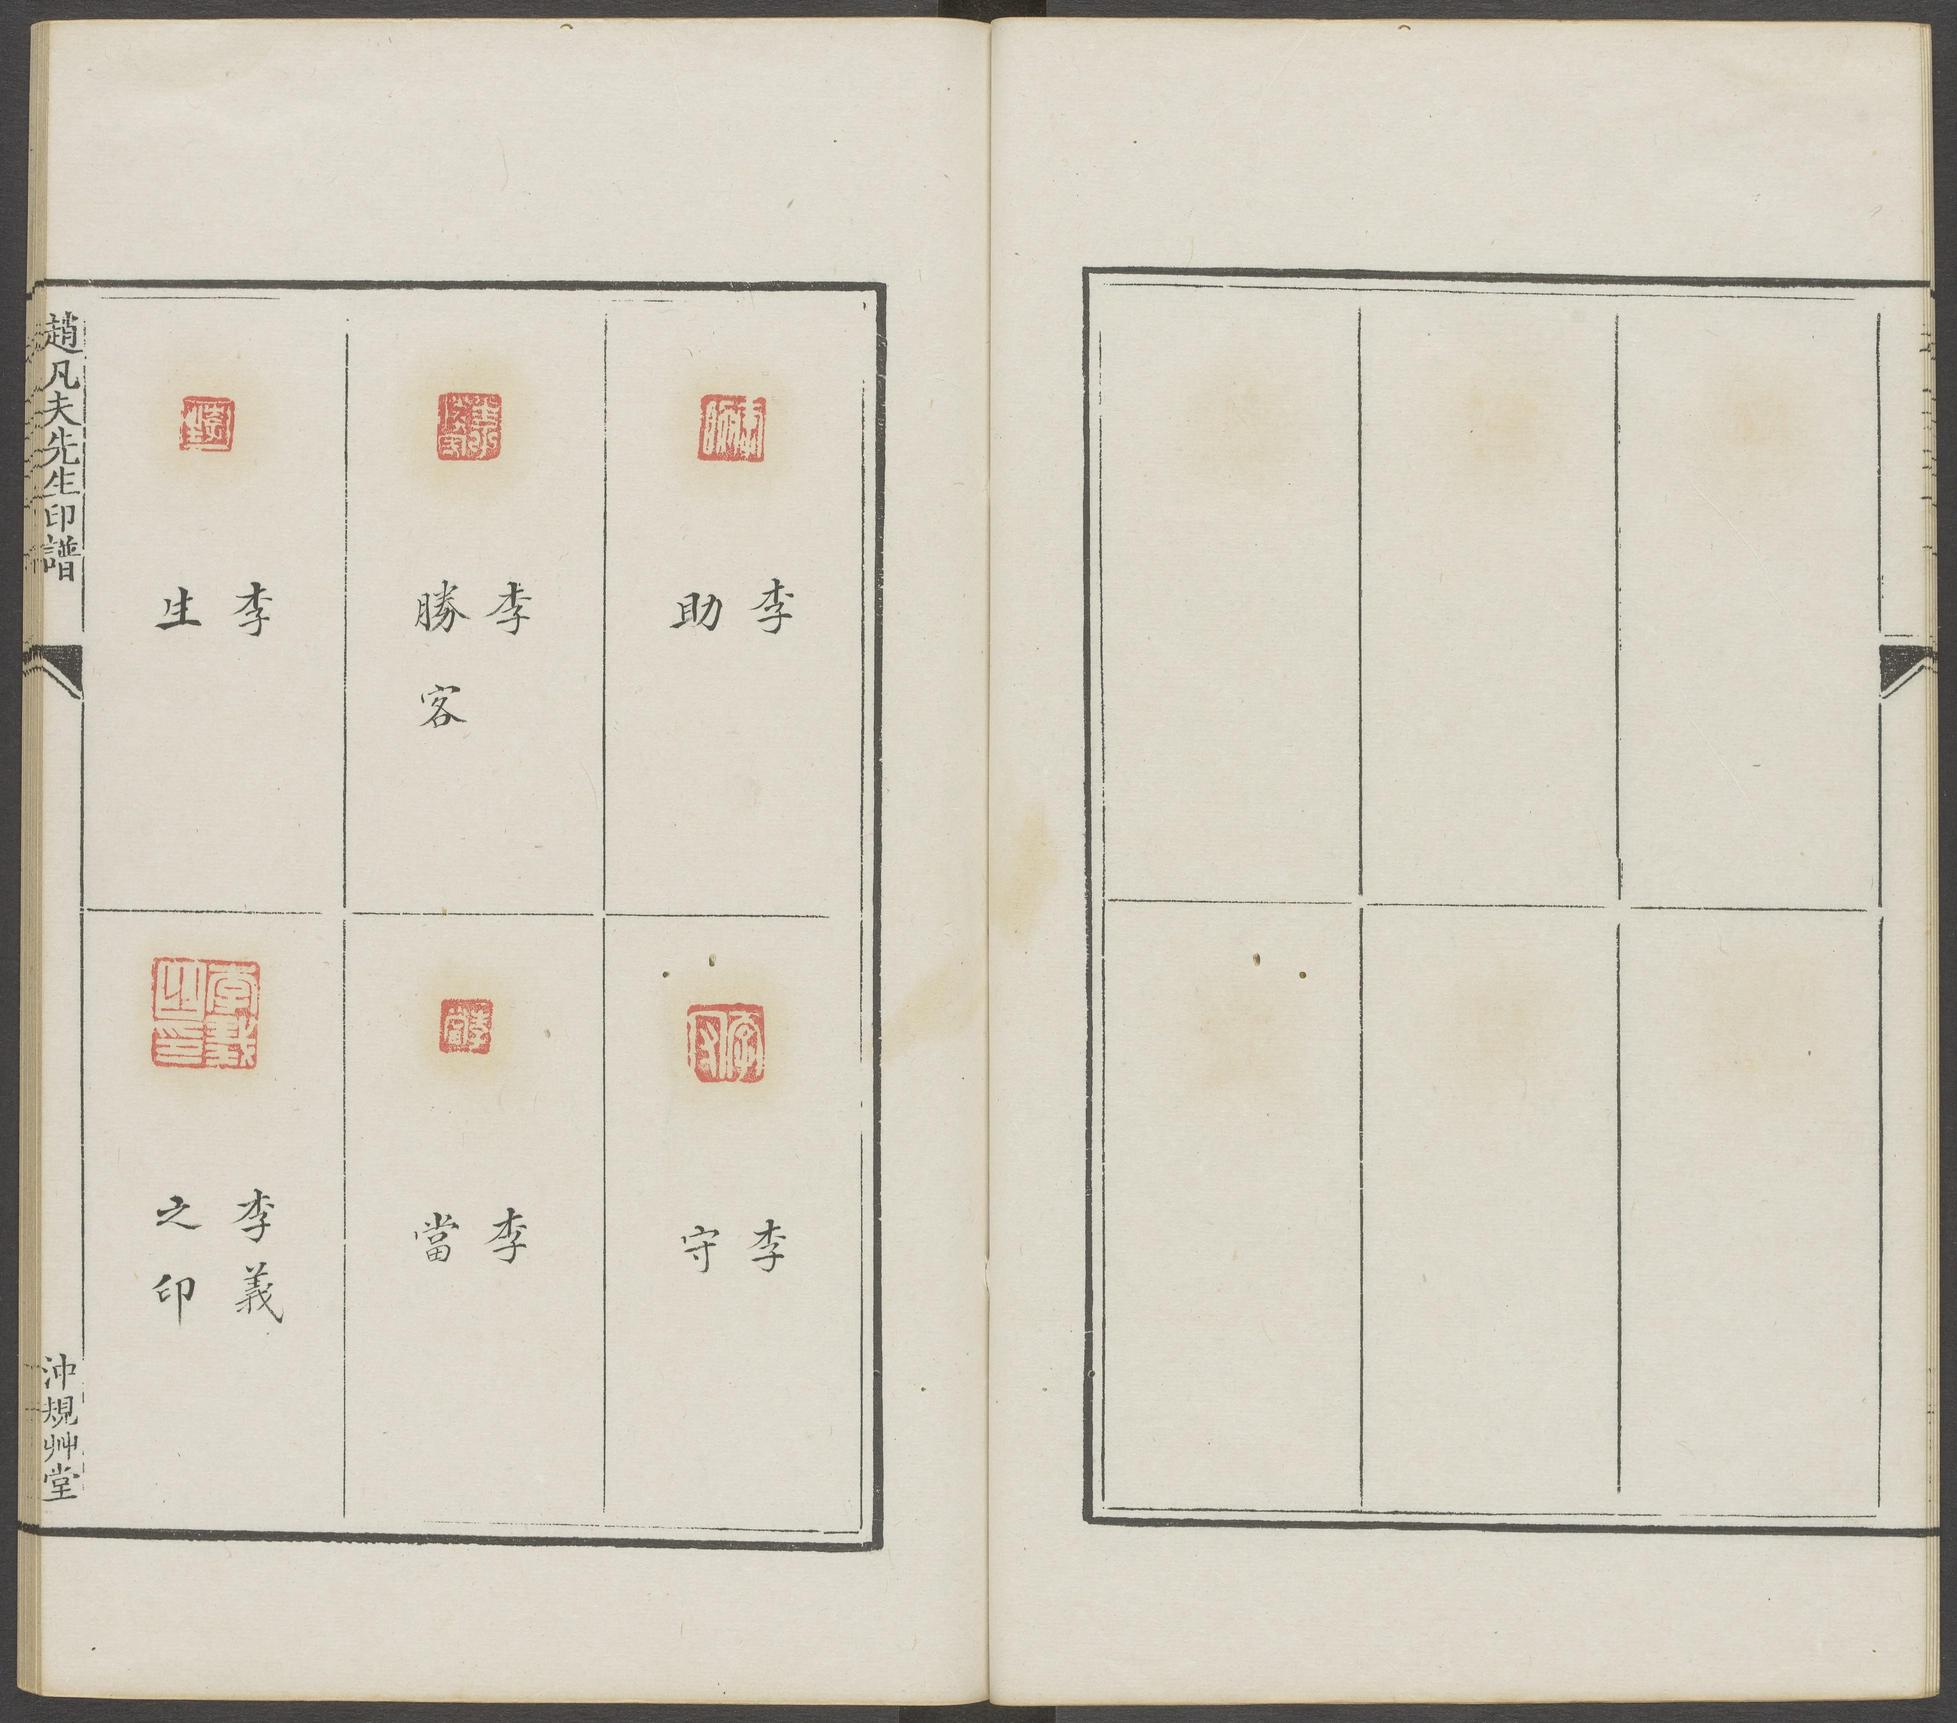 李
助
李
守
李
勝客
李
當
李
生
李義
之印
趙凡夫先生印譜
沖規艸堂